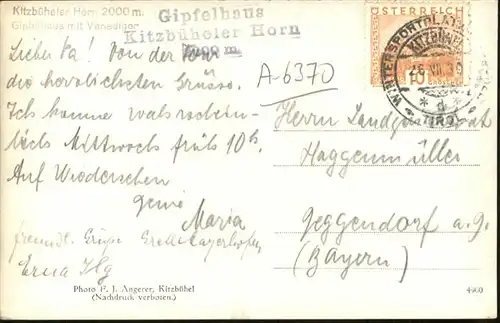 Kitzbüheler Horn 2000 m.
Gipfelhaus mit Venediger
Gipfelhaus
Kitzbüheler Horn
2000 m.
ÖSTERREICH
WINTERSPORTPLATZ
KITZBÜHEL
TIROL
A-6370
Lieber Pa! Von der Tour
die herzlichsten Grüsse.
Ich komme wahrschein-
lich Mittwoch früh 10h.
Auf Wiedersehen
Deine
Maria
freundl. Grüße
Erna Ilg
Herrn
Haggenmüller
Deggendorf a. D.
(Bayern)
Photo F. J. Angerer, Kitzbühel
(Nachdruck verboten.)
4960